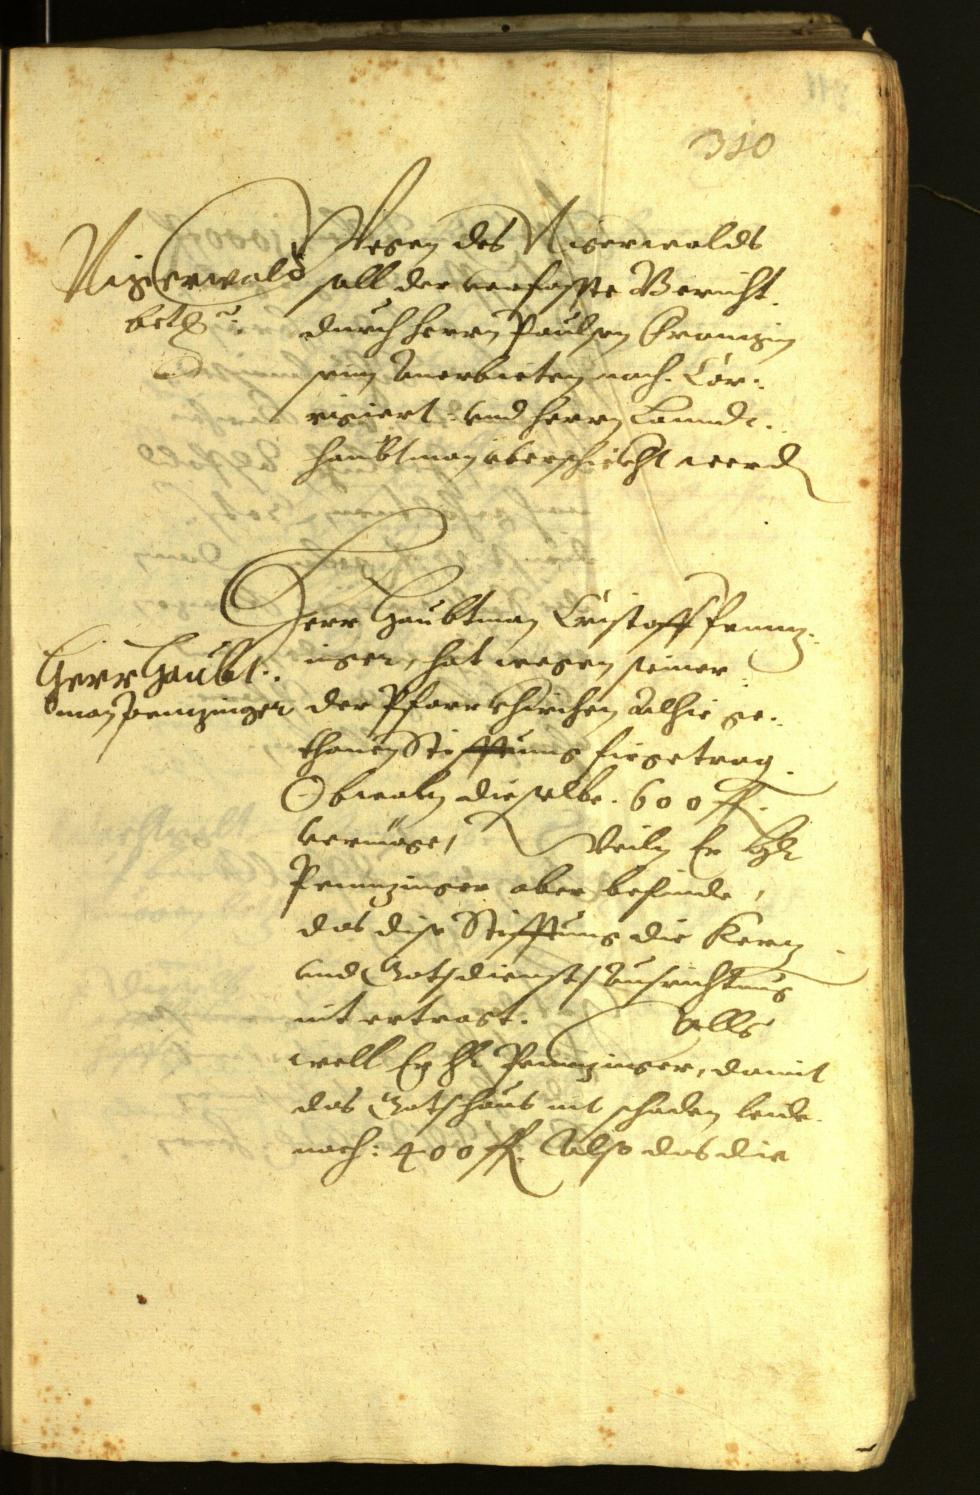 310
Nigerwald
betr:
Wegen des Nigerwalds
soll der verfasste Bericht
durch herrn Paulsen Kranzin
sein Anerbieten nach. Cor¬
rigiert. und herrn Lanndt¬
haubtman yberschickht werdn
Herr Haubt¬
man Penninzinger
Herr Haubtman Cristoff Penninz¬
inger, hat wegen seiner
der Pfarrkhirchen Alhie ge¬
thanen Stifftung firgetragen.
Obwoln dieselbe. 600 fl.
vermöge, Weiln Er Hr
Penninzinger aber befinde,
das dise Stifftung die Kerzn
und Gotsdiensts Ausrichtung
nit ertragt. Alls
well Er Hr Penninzinger, damit
das Gotshaus nit schaden leide
noch: 400 fl. Also das die